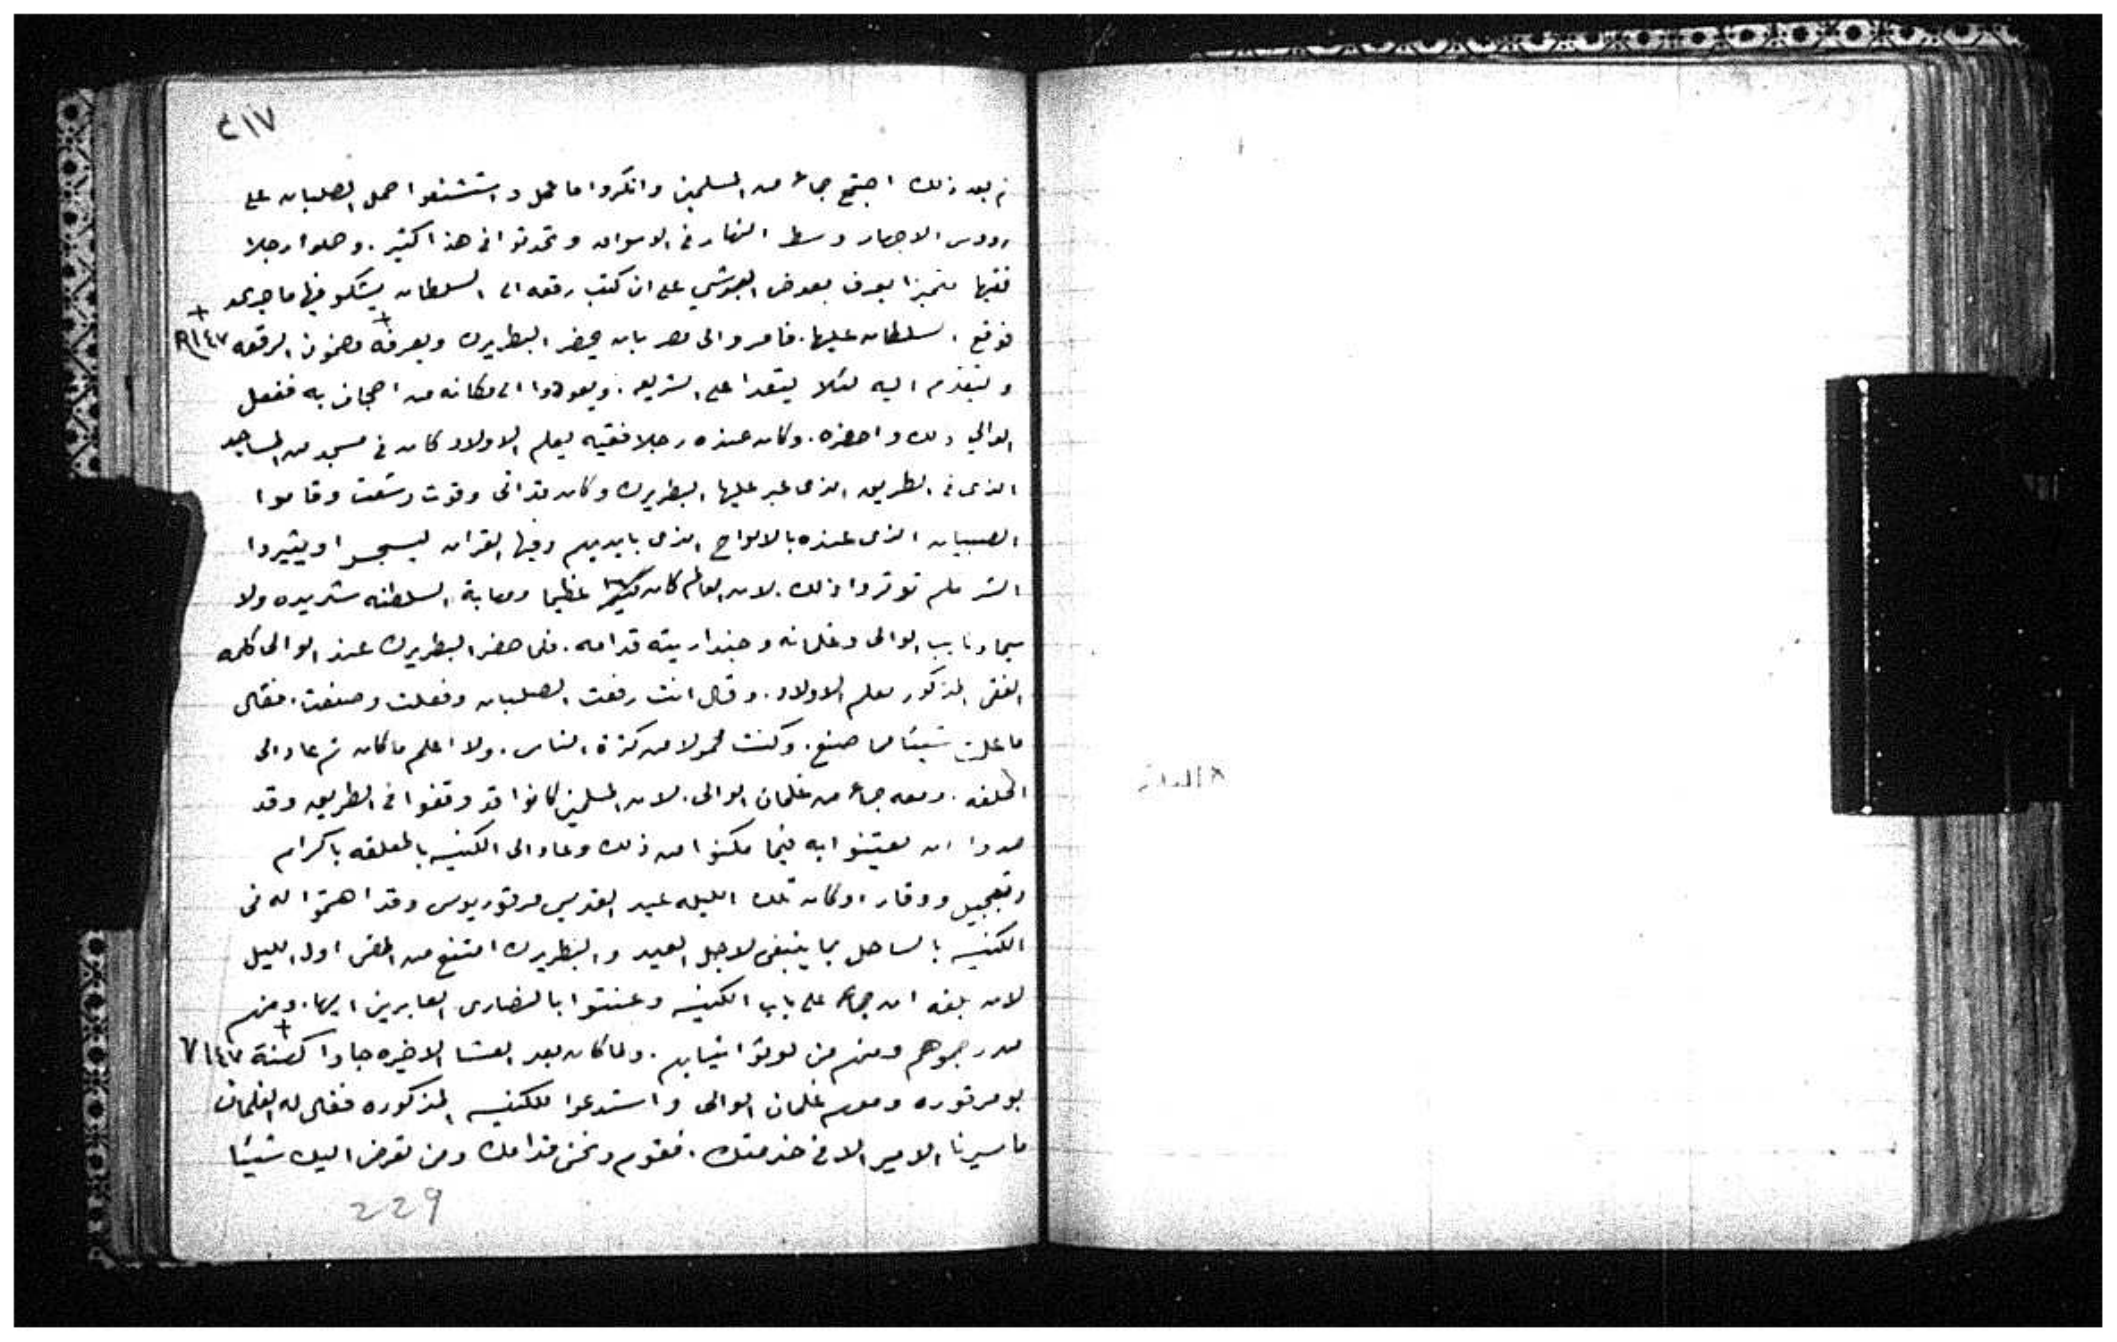 ٤١٧
ثم بعد ذلك اجتمع جماعه من المسلمين وانكروا ما عمل واستشنعوا حمل الصلبان على
رووس الاجهار وسط النهار في الاسواق وتحدثوا في هذا كثير. وحملوا رجلا
فقيها متميزا يعرف بعوض البوشي على ان كتب رقعه الى السلطان يشكو فيها ما جرى
فوقع السلطان عليها. فامر والى مصر بان يحضر البطريرك ويعرفه مضمون الرقعه R١٤٧
ويتقدم اليه لئلا يتعدا على الشريعه. ويعودوا الى مكانه من اجحان به ففعل
الوالي ذلك واحضره. وكان عنده رجلا فقيه يعلم الاولاد كان في مسجد من المساجد
الذى في الطريق الذى عبر عليها البطريرك وكان قد اتى وقوت وشعت وقاموا
الصبيان الذى عنده بالالواح الذى بايديهم وفيها القران ليسجسوا ويثيروا
الشر فلم توثروا ذلك. لان العالم كان عظيما ومهابة السلطنه شديده ولا
سيما ونايب الوالى وغلمانه وجنداريته قدامه. فلما حضر البطريرك عند الوالى كلمه
الفقى المذكور معلم الاولاد. وقال انت رفعت الصلبان وفعلت وصنعت. فقال
ما علمت شيئا مما صنع. وكنت محمولا من كثرة الناس. ولا اعلم ما كان ثم عاد الى
المعلقه. ومعه جماعه من غلمان الوالى. لان المسلمين كانوا قد وقفوا في الطريق وقد
ان يعبثوا به فيما مكنوا من ذلك وعاد الى الكنيسه بالمعلقه باكرام
وتبجيل ووقار وكان تلك الليله عيد القديس مرقوريوس وقد اهتموا له فى
الكنيسه بالساحل بما ينبغى لاجل العيد والبطريرك امتنع من المضى اول الليل
لان بلغه ان جماعه على باب الكنيسه وعنتوا بالنصارى العابرين اليها. ومنهم
من رجموهم ومنهم من لوثوا ثيابهم. ولما كان بعد العشا الاخيره جاوا كهنة V١٤٧
بو مرقوره ومعهم غلمان الوالى واستدعوا للكنيسه المذكوره فقال له الغلمان
ما سيرنا الامير الا في خدمتك. فقوم ونحن قدامك ومن تعرض اليك شيئا
229